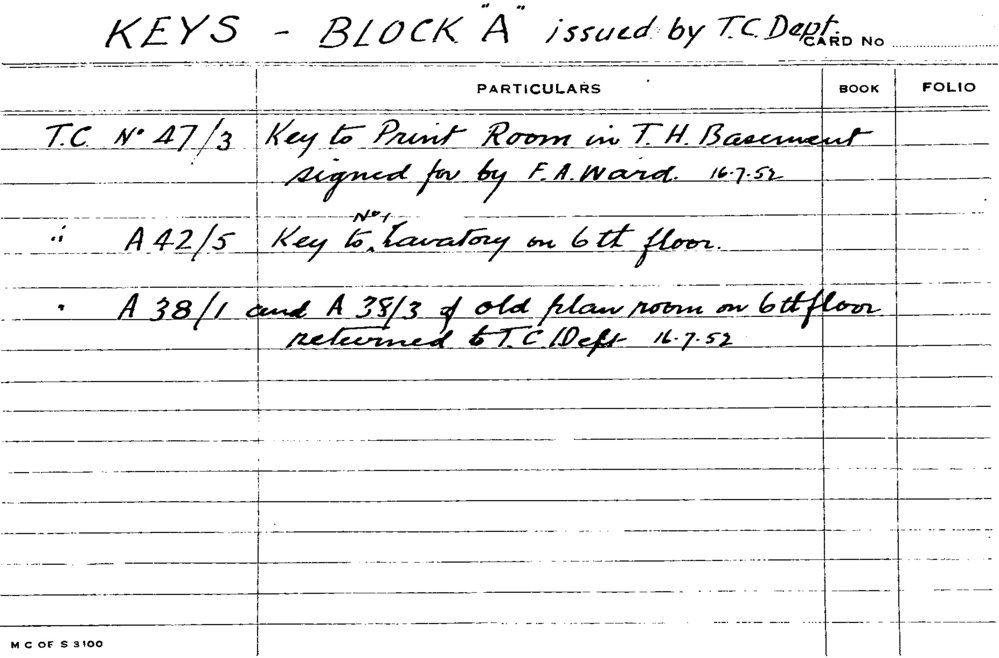 KEYS - BLOCK "A" issued by T.C. Dept.
CARD No
PARTICULARS BOOK FOLIO
T.C. No 47/3 Key to Print Room in T. H. Basement
signed for by F. A. Ward. 16.7.52
" A 42/5 Key to No 1 Lavatory on 6th floor.
" A 38/1 and A 38/3 of old plan room on 6th floor
returned to T.C. Dept 16.7.52
M C OF S 3100